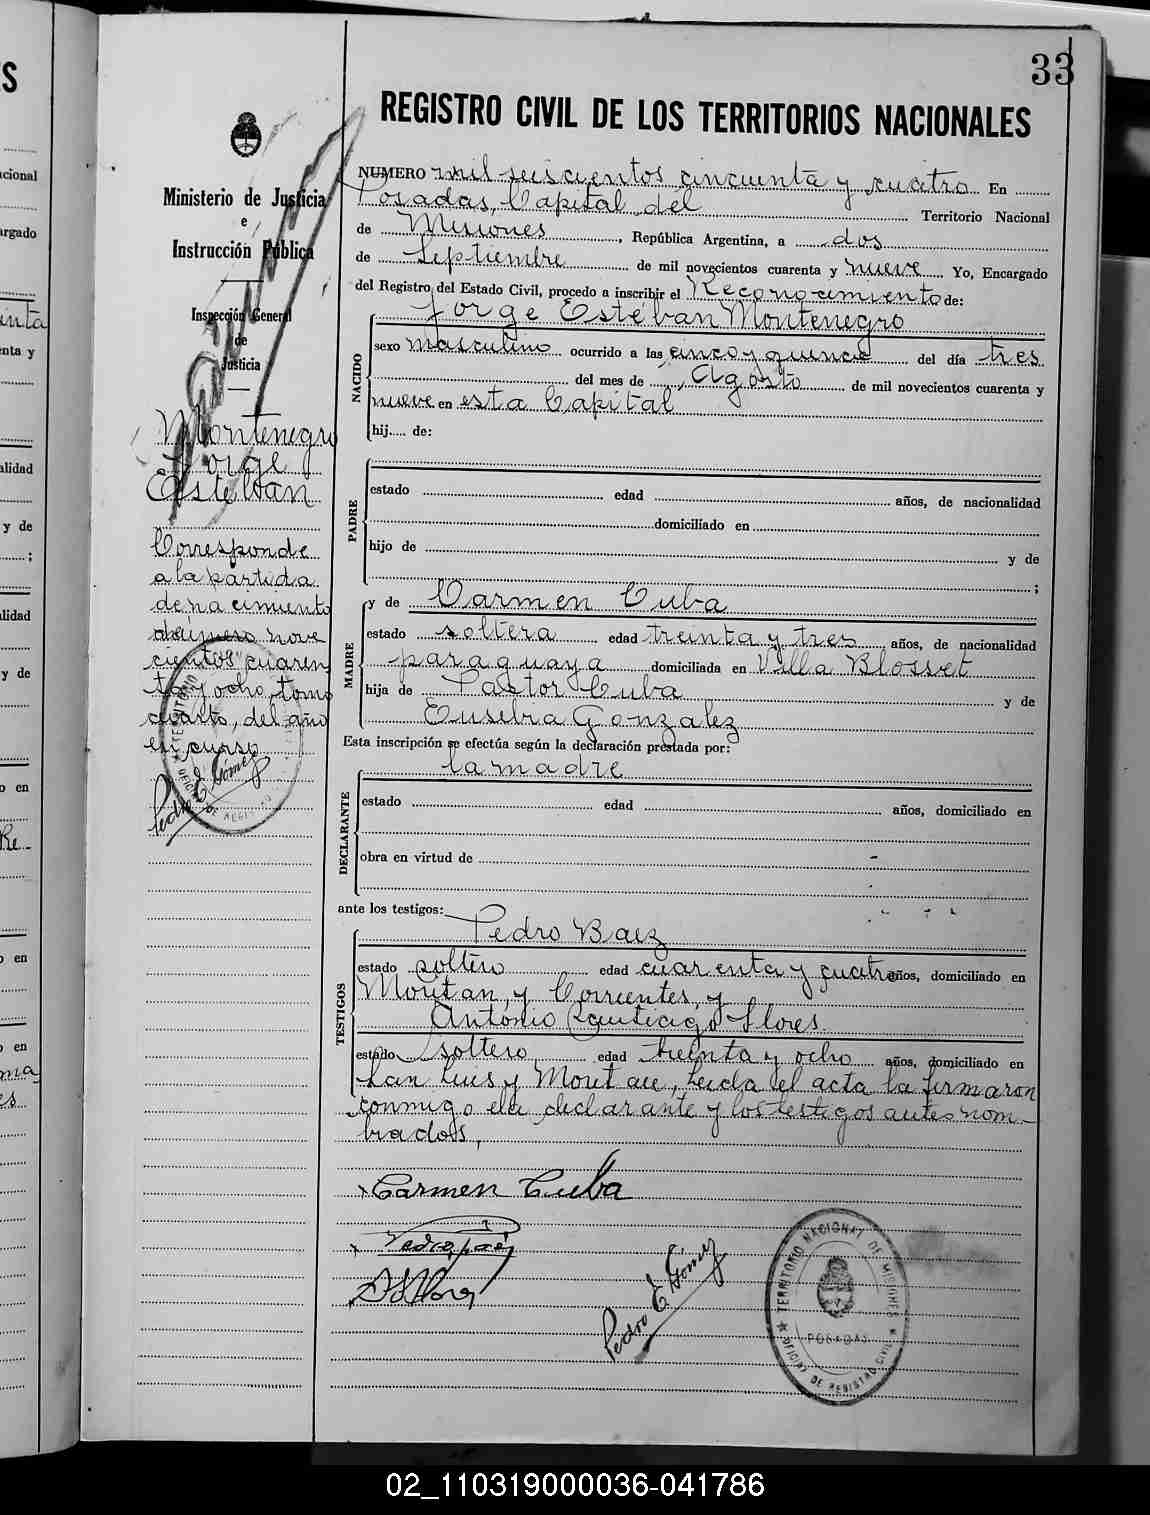 33
REGISTRO CIVIL DE LOS TERRITORIOS NACIONALES
Ministerio de Justicia
e
Instrucción Pública
Inspección General
de
Justicia
Montenegro
Jorge
Esteban
Corresponde
a la partida
de nacimiento
número nove
cientos cuaren
ta y ocho, tomo
cuarto, del año
en curso
Pedro E. Gómez
NUMERO mil seiscientos cincuenta y cuatro En
Posadas, Capital del Territorio Nacional
de Misiones, República Argentina, a dos
de Septiembre de mil novecientos cuarenta y nueve Yo, Encargado
del Registro del Estado Civil, procedo a inscribir el Reconocimiento de:
Jorge Estéban Montenegro
NACIDO
sexo masculino ocurrido a las cinco y quince del día tres
del mes de Agosto de mil novecientos cuarenta y
nueve en esta Capital
hij.... de:
PADRE
estado edad años, de nacionalidad
domiciliado en
hijo de y de
;
MADRE
y de Carmen Cuba
estado soltera edad treinta y tres años, de nacionalidad
paraguaya domiciliada en Villa Blosset
hija de Pastor Cuba y de
Eusebia Gonzalez
Esta inscripción se efectúa según la declaración prestada por:
la madre
DECLARANTE
estado edad años, domiciliado en
obra en virtud de
ante los testigos:
Pedro Baez
TESTIGOS
estado soltero edad cuarenta y cuatro años, domiciliado en
Moritan y Corrientes, y
Antonio Santiago Flores
estado soltero edad treinta y ocho años, domiciliado en
San Luis y Moritan, Leida el acta la firmaron
conmigo ela declarante y los testigos antes nom-
brados,
Carmen Cuba
Pedro Báez
Pedro E. Gómez
TERRITORIO NACIONAL DE MISIONES
POSADAS
OFICINA DE REGISTRO CIVIL
02_110319000036-041786